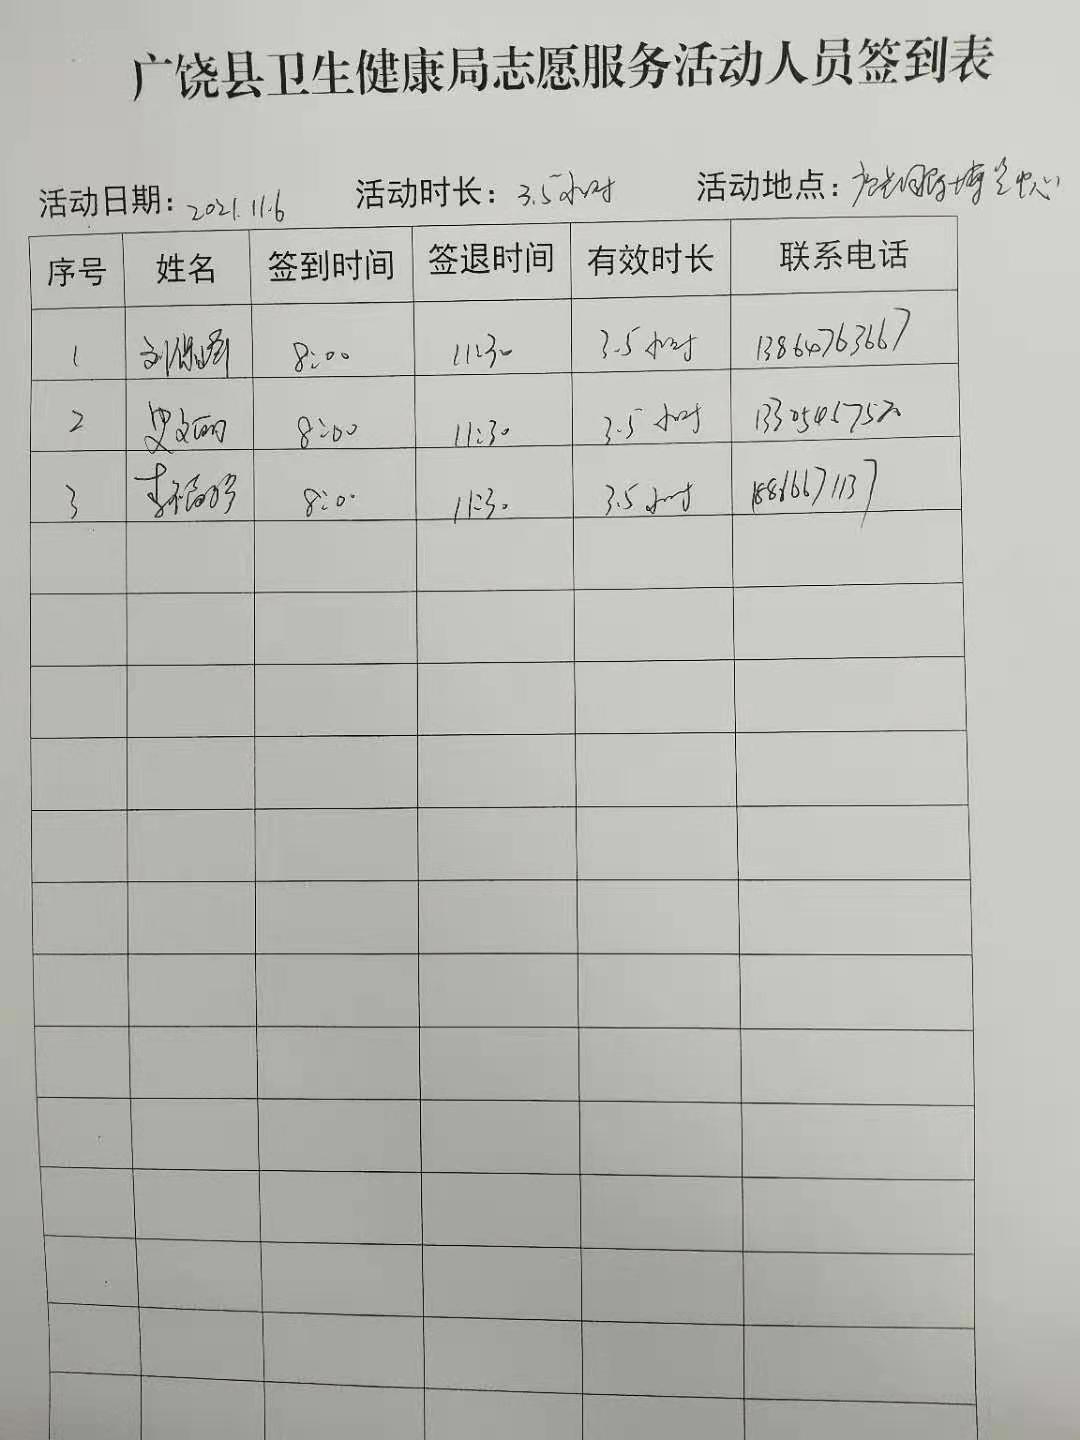 广饶县卫生健康局志愿服务活动人员签到表
活动日期：2021.11.6 活动时长：3.5小时 活动地点：中心
序号 姓名 签到时间 签退时间 有效时长 联系电话
1 8:00 11:30 3.5小时 13864763667
2 史文丽 8:00 11:30 3.5小时
3 8:00 11:30 3.5小时 18866671137